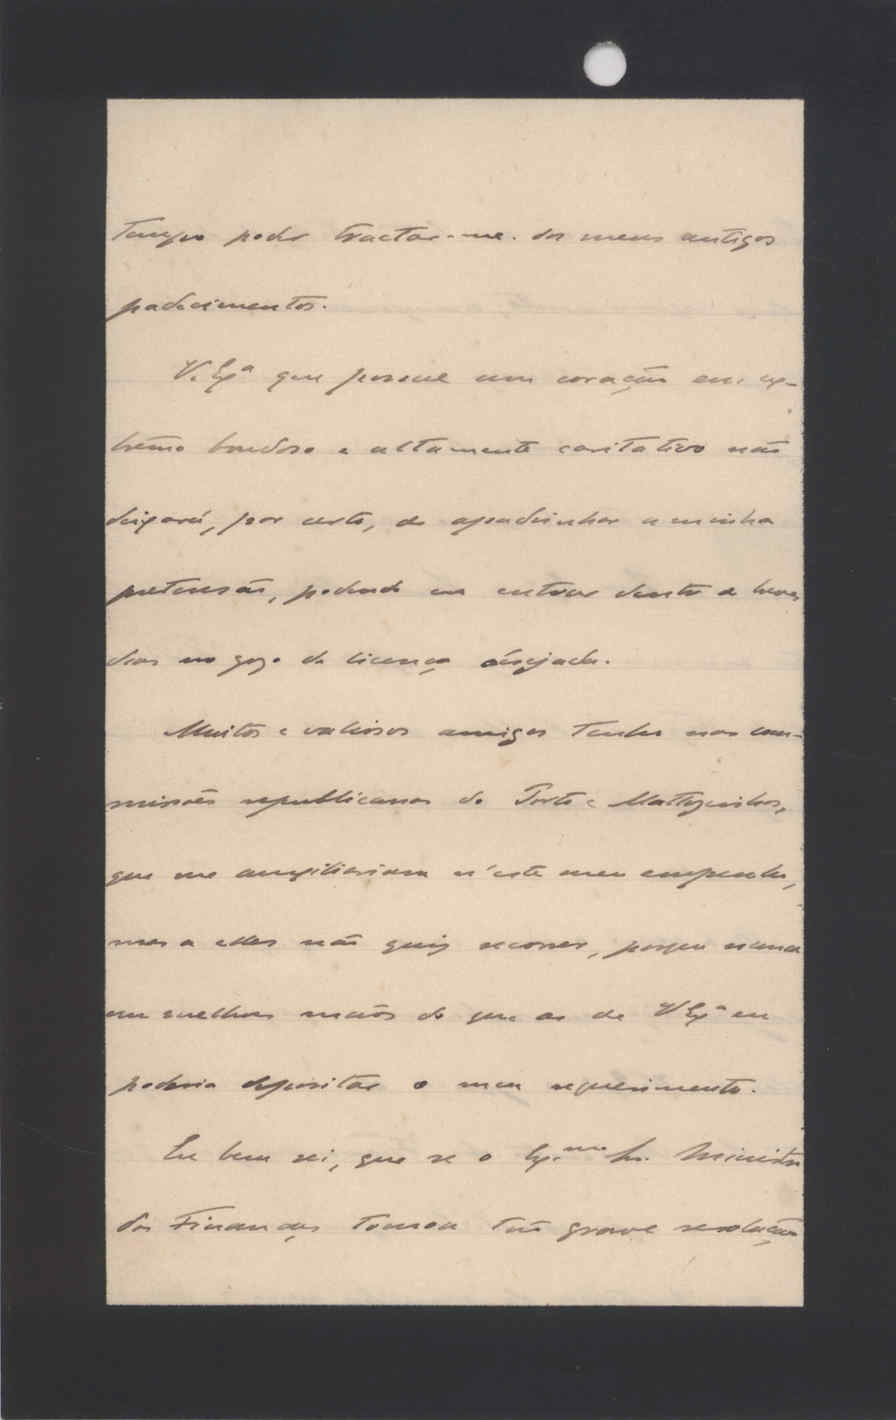 tempo poder tractar-me dos meus antigos
padecimentos.
V. Exª que possue um coração em ex-
tremo bondoso e altamente caritativo não
deixará, por certo, de apadrinhar a minha
pretensão, podendo eu entrar dentro de breves
dias no gozo da licença desejada.
Muitos e valiosos amigos tenho nas com-
missões republicanas do Porto e Mattozinhos,
que me auxiliariam n'este meu empenho,
mas a elles não quiz recorrer, porque nunca
em melhores mãos do que as de V Exª eu
poderia depositar o meu requerimento.
Eu bem sei, que se o Ex.mo Sr. Ministro
das Finanças tomou tão grave resolução